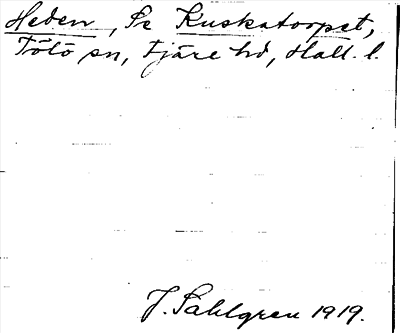 Heden, Se Kuskatorpet,
Tölö sn, Fjäre hd, Hall. l.
J. Sahlgren 1919.